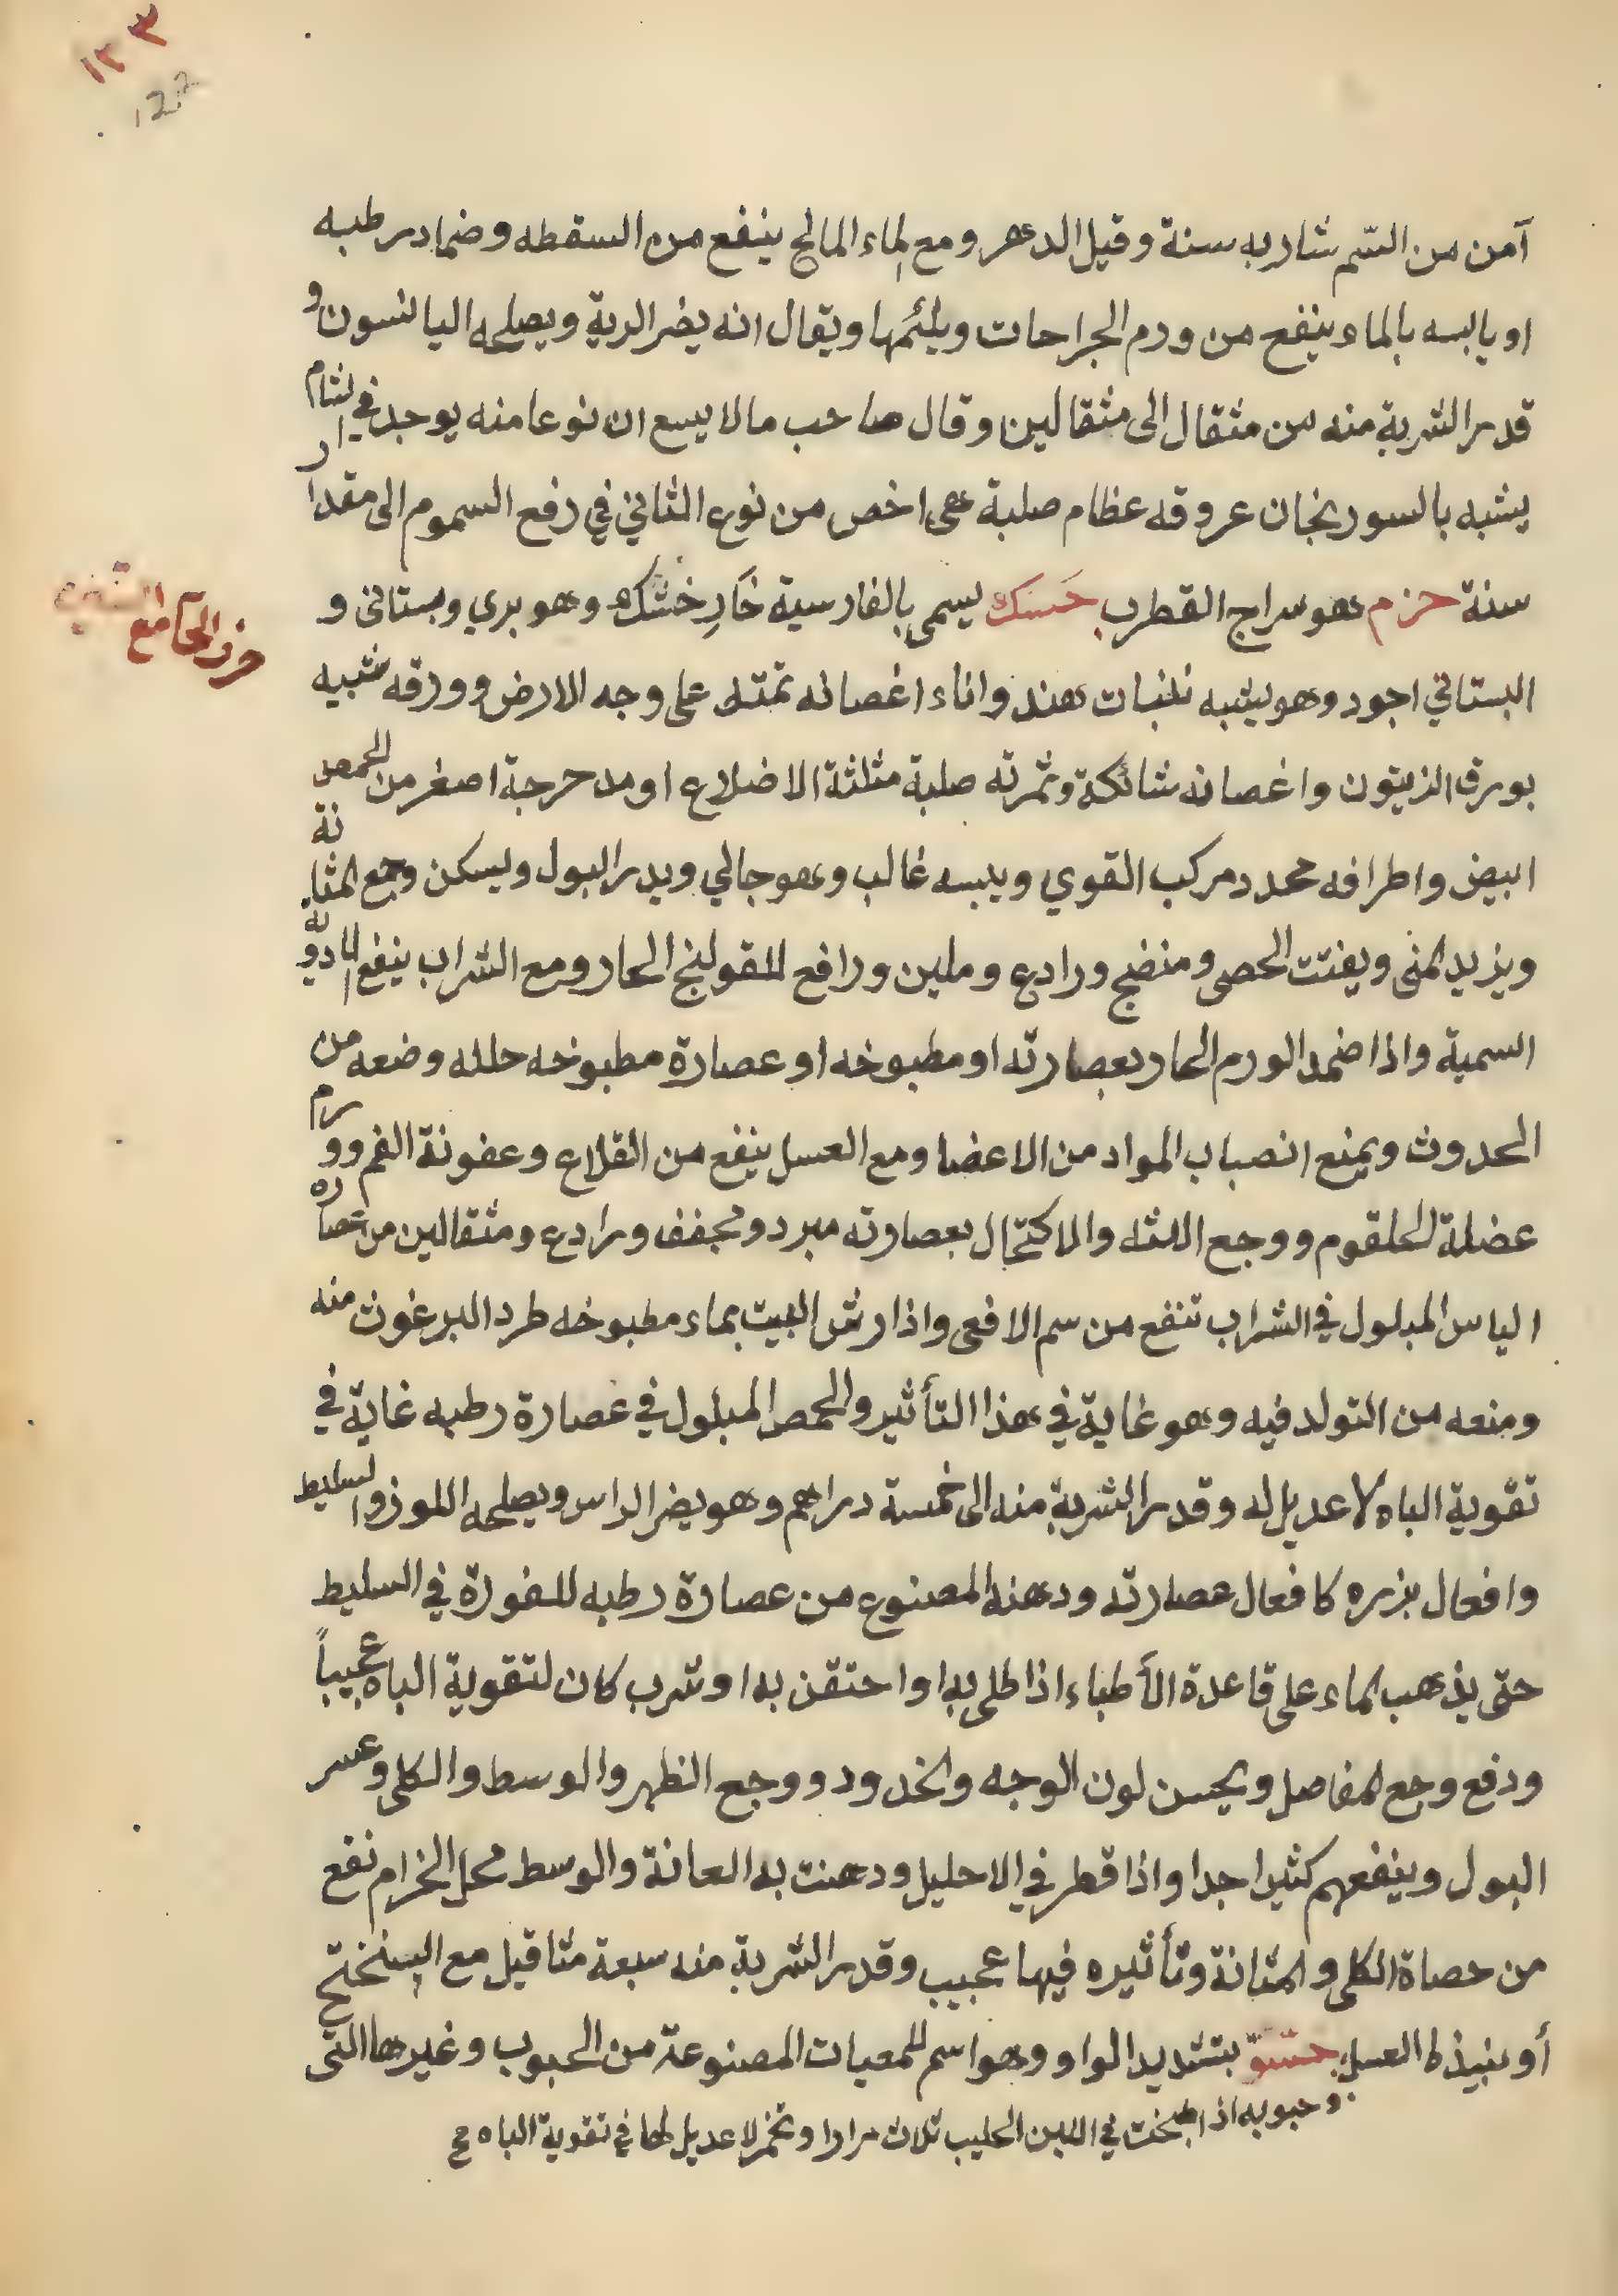 ١٢٣
122
آمن من السّم شاربه سنة وقيل الدهر ومع الماء المالح ينفع من السقطه وضماد رطبه
او يابسه بالماء ينفع من ورم الجراحات ويلئمها ويقال انه يضر الرية ويصلحه اليانسون و
قدر الشربة منه من مثقال الى مثقالين وقال صاحب مالا يسع ان نوعا منه يوجد في الشام
يشبه بالسورنجان عروقه عظام صلبة هي اخص من نوع الثاني في رفع السموم الى مقدار
سنة حزم هو سراج القطرب حَسَك يسمى بالفارسية خَارِ خشك وهو بري وبستانى و
حرف الحآ مع السّين
البستاني اجود وهو يشبه نلنبات هند واناء اغصانه تمتد على وجه الارض وورقه شبيه
بورق الزيتون واغصانه شائكة وثمرته صلبة مثلثة الاضلاع او مدحرجة اصغر من الحمص
ابيض واطرافه محدد مركب القوي ويبسه غالب وهو جالي ويدر البول ويسكن وجع المثانة
ويزيد المنى ويفتت الحصى ومنضج ورادع وملين ورافع للقولنج الحار ومع الشراب ينفع الادوية
السمية واذا ضمد الورم الحار بعصارته او مطبوخه او عصارة مطبوخه حلله وضعه من
الحدوث ويمنع انصباب المواد من الاعضا ومع العسل ينفع من القلاع وعفونة الفم وورم
عضلة الحلقوم ووجع اللثه والاكتحال بعصارته مبرد ومجفف ورادع ومثقالين من عصاره
الياس المبلول في الشراب تنفع من سم الافعى واذا رش البيت بماء مطبوخه طرد البرغوث منه
ومنعه من التولد فيه وهو غاية في هذا التأثير والحمص المبلول في عصارة رطبه غاية في
تقوية الباه لا عديل له وقدر الشربة منه الى خمسة دراهم وهو يضر الراس ويصلحه اللوز والسليط
وافعال بزره كافعال عصارته ودهنه المصنوع من عصارة رطبه للفورة في السليط
حتى يذهب الماء على قاعدة الأطباء اذا طلى به او احتقن به او شرب كان لتقوية الباه عجيباً
ودفع وجع المفاصل ويحسن لون الوجه والخدود ووجع الظهر والوسط والكلى وعسر
البول وينفعهم كثيرا جدا واذا قطر في الاحليل ودهنت به العانة والوسط محل الخرام نفع
من حصاة الكلى والمثانة وتأثيره فيها عجيب وقدر الشربة منه سبعة مثاقيل مع البنختج
أو نبيذ العسل حسّوّ بتشديد الواو وهو اسم للمعيات المصنوعة من الحبوب وغيرها التى
وحبوبه اذا طبخت في اللبن الحليب ثلاث مرارا وتخمر لا عديل لها في تقوية الباه مح